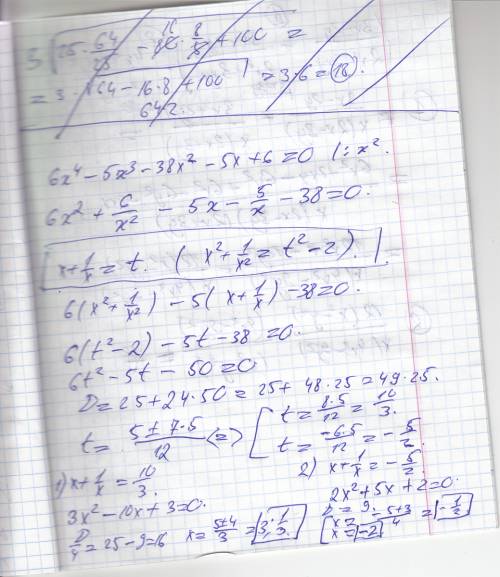 3√25·64/25 − 80·8/5 + 100 =
= 3√64 − 16·8 + 100 = 3·6 = 18.
6x⁴ − 5x³ − 38x² − 5x + 6 = 0 | : x².
6x² + 6/x² − 5x − 5/x − 38 = 0.
x + 1/x = t. (x² + 1/x² = t² − 2).
6(x² + 1/x²) − 5(x + 1/x) − 38 = 0.
6(t² − 2) − 5t − 38 = 0.
6t² − 5t − 50 = 0
D = 25 + 24·50 = 25 + 48·25 = 49·25.
t = (5 ± 7·5)/12 <=> [ t = 8·5/12 = 10/3.
t = −6·5/12 = −5/2.
1) x + 1/x = 10/3.
2) x + 1/x = −5/2.
3x² − 10x + 3 = 0.
2x² + 5x + 2 = 0.
D/4 = 25 − 9 = 16 x = (5 ± 4)/3 = 3; 1/3.
D = 9.
[ x = (−5 + 3)/4 = −1/2
x = −2